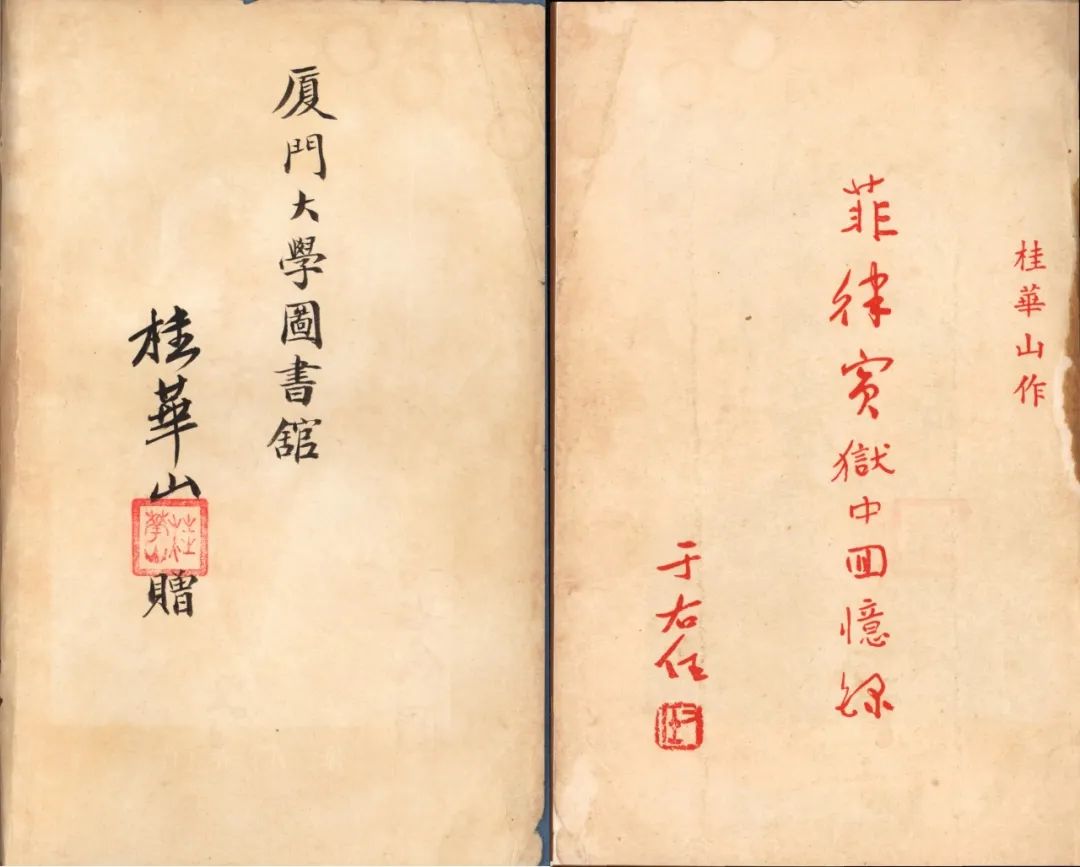 厦門大學圖書館
桂華山贈
桂華山
桂華山作
菲律宾獄中囬憶録
于右任